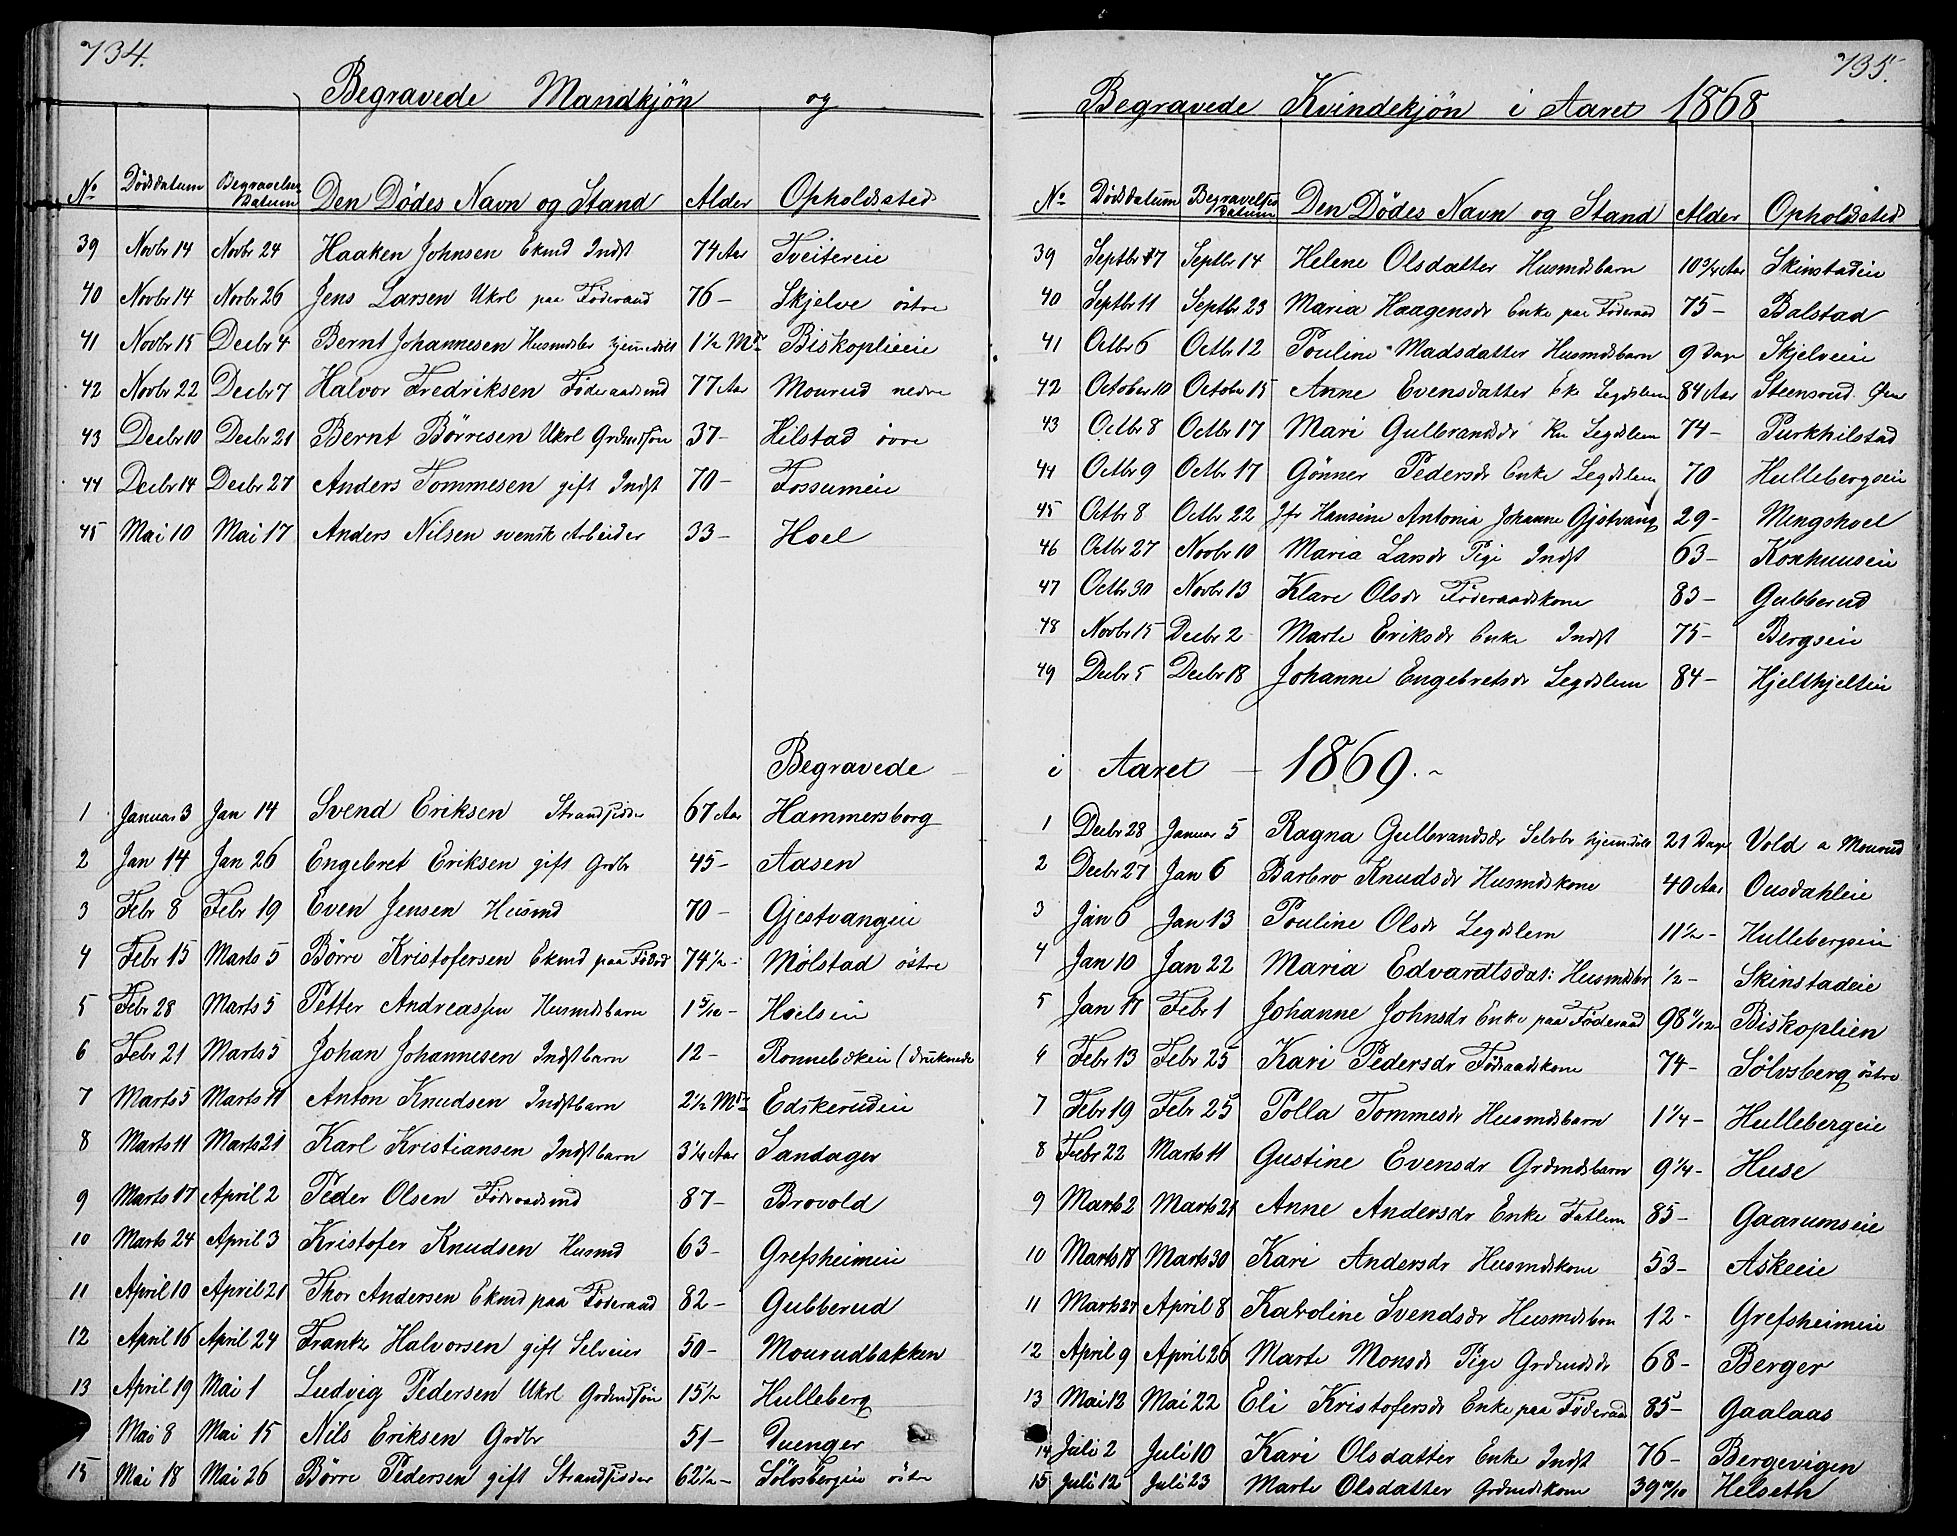 734.
Begravede Mandkjøn og
No Dødsdatum Begravelses Datum Den Dødes Navn og Stand Alder Opholdssted
39 Novbr 14 Novbr 24 Haaken Johnsen Ekmd Indst 74 Aar Tveitereie
40 Novbr 14 Novbr 26 Jens Larsen Ukrl paa Føderaad 76 – Skjelve östre
41 Novbr 15 Decbr 4 Bernt Johannesen Husmdsbr hjemedöbt 1½ Mdr Biskoplieie
42 Novbr 22 Decbr 7 Halvor Fredriksen Föderaadsmd 77 Aar Mourud nedre
43 Decbr 10 Decbr 21 Bernt Börresen Ukrl Grdmdsön 37 – Hilstad övre
44 Decbr 14 Decbr 27 Anders Tommesen gift Indst 70 – Fossumeie
45 Mai 10 Mai 17 Anders Nilsen svensk Arbeider 33 – Hoel
Begravede
1 Januar 3 Jan 14 Svend Eriksen Strandsidder 67 Aar Hammersborg
2 Jan 14 Jan 26 Engebret Eriksen gift Grdbr 45 – Aasen
3 Febr 8 Febr 19 Even Jensen Husmd 70 – Gjestvangeie
4 Febr 15 Marts 5 Börre Kristofersen Ekmd paa Födrd 74½ – Mölstad östre
5 Febr 28 Marts 5 Petter Andreassen Husmdsbarn 1 5/12 – Hoelseie
6 Febr 21 Marts 5 Johan Johannesen Indstbarn 12 – Ronnebekeie (druknede
7 Marts 5 Marts 11 Anton Knudsen Indstbarn 2½ Mdr Edskerudeie
8 Marts 11 Marts 21 Karl Kristiansen Indstbarn 3¼ Aar Sandager
9 Marts 17 April 2 Peder Olsen Föderaadsmd 87 – Brovold
10 Marts 24 April 3 Kristofer Knudsen Husmd 63 – Grefsheimeie
11 April 10 April 21 Thor Andersen Ekmd paa Föderaad 82 – Gubberud
12 April 16 April 24 Frantz Halvorsen gift Selveier 50 – Mourudbakken
13 April 19 Mai 1 Ludvig Pedersen Ukrl Grdmdsön 15½ Hulleberg
Mai 8 Mai 15 Nils Eriksen Grdbr 51 – Duenger
15 Mai 18 Mai 26 Börre Pedersen gift Strandsidder 62½ – Sölvsbergeie östre
735.
Begravede Kvindekjön i Aaret 1868
No Dødsdatum Begravelses Datum Den Dödes Navn og Stand Alder Opholdssted
39 Septbr 7 Septbr 14 Helene Olsdatter Husmdsbarn 10¾ Aar Skinstadeie
40 Septbr 11 Septbr 23 Maria Haagensdr Enke paa Föderaad 75 – Balstad
41 Octbr 6 Octbr 12 Pouline Madsdatter Husmdsbarn 9 Dage Skjelveie
42 October 10 October 15 Anne Evensdatter Eke Legdslem 84 Aar Steensrud
43 Octbr 8 Octbr 17 Mari Gulbrandsdr Legdslem 74 – Purkhilstad
44 Octbr 9 Octbr 17 Gönner Pedersdr Enke Legdslem 70 Hullebergseie
45 Octbr 8 Octbr 22 Jfr Hansine Antonia Johanne Gjestvang 29 – Mengshoel
46 Octbr 27 Novbr 10 Maria Larsdr Pige Indst 63 – Korhuuseie
47 Octbr 30 Novbr 13 Klare Olsdr Föderaadskone 83 – Gubberud
48 Novbr 15 Decbr 2 Marte Eriksdr Enke Indst 75 – Bergseie
49 Decbr 5 Decbr 18 Johanne Engebretsdr Legdslem 84 – Hjelthjelteie
i Aaret – 1869.
1 Decbr 28 Januar 5 Ragna Gulbrandsdr Selvbr hjemdöbt 21 Dage Vold a Mourud
2 Decbr 27 Jan 6 Barbro Knudsdr Husmdskone 40 Aar Ousdahleie
3 Jan 6 Jan 13 Pouline Olsdr Legdslem 11½ – Hullebergseie
4 Jan 10 Jan 22 Maria Edvardtsdat: Husmdsbr ½ – Skinstadeie
5 Jan 17 Febr 1 Johanne Johnsdr Enke paa Föderaad 98 Biskoplieie
6 Febr 13 Febr 25 Kari Pedersdr Föderaadskone 74 – Sölvsberg östre
7 Febr 19 Febr 25 Polla Tommesdr Husmdsbarn 1¼ – Hullebergeie
8 Febr 22 Marts 11 Gustine Evensdr Grdmdsbarn 9¼ – Huse
9 Marts 2 Marts 21 Anne Andersdr Enke Fatlem 85 – Gaarumseie
10 Marts 18 Marts 30 Kari Andersdr Husmdskone 53 – Askeeie
11 Marts 27 April 8 Karoline Svendsdr Husmdsbrn 12 – Grefsheimeie
12 April 9 April 26 Marte Monsdr Pige Grdmdsdr 68 – Berger
13 Mai 12 Mai 22 Eli Kristofersdr Enke paa Föderaad 85 – Gaalaas
14 Juli 2 Juli 10 Kari Olsdatter Enke Indst 76 – Bergevigen
15 Juli 12 Juli 23 Marte Olsdatter Grdmdskone 39 Helseth